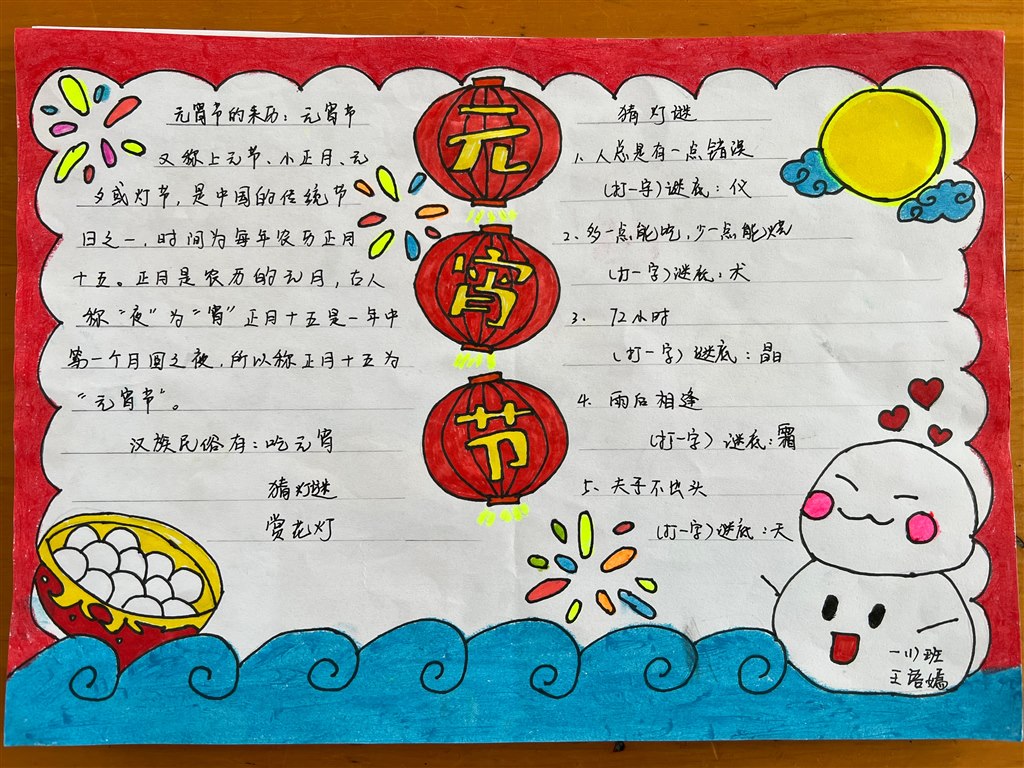 元宵节
元宵节的来历：元宵节
又称上元节、小正月、元
夕或灯节，是中国的传统节
日之一，时间为每年农历正月
十五。正月是农历的元月，古人
称“夜”为“宵”正月十五是一年中
第一个月圆之夜，所以称正月十五为
“元宵节”。
汉族民俗有：吃元宵
猜灯谜
赏花灯
猜灯谜
1、人总是有一点错误
(打一字)谜底：仪
2、多一点能吃，少一点能烧
(打一字)谜底：犬
3、72小时
(打一字)谜底：晶
4、雨后相逢
(打一字)谜底：霜
5、夫子不出头
(打一字)谜底：天
一(1)班
王语嫣